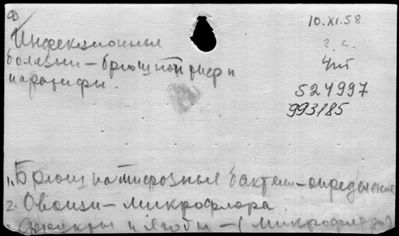 Ф
10.XI.58
Инфекционные
г. с.
болезни – брюшной тиф и
4пб
паратифы.
524997
993185
1. Брюшнотифозные бактерии – определение
2. Овощи – микрофлора
Фрукты и ягоды – (микрофлора)